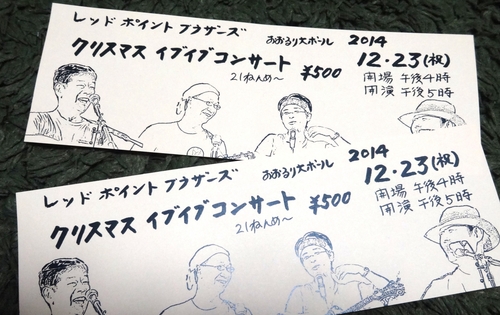 レッド ポイント ブラザーズ おおるり大ホール 2014
クリスマス イブイブコンサート ¥500 12.23(祝)
21ねんめ〜 開場 午後4時
開演 午後5時
レッド ポイント ブラザーズ おおるり大ホール 2014
クリスマス イブイブコンサート ¥500 12.23(祝)
21ねんめ〜 開場 午後4時
開演 午後5時